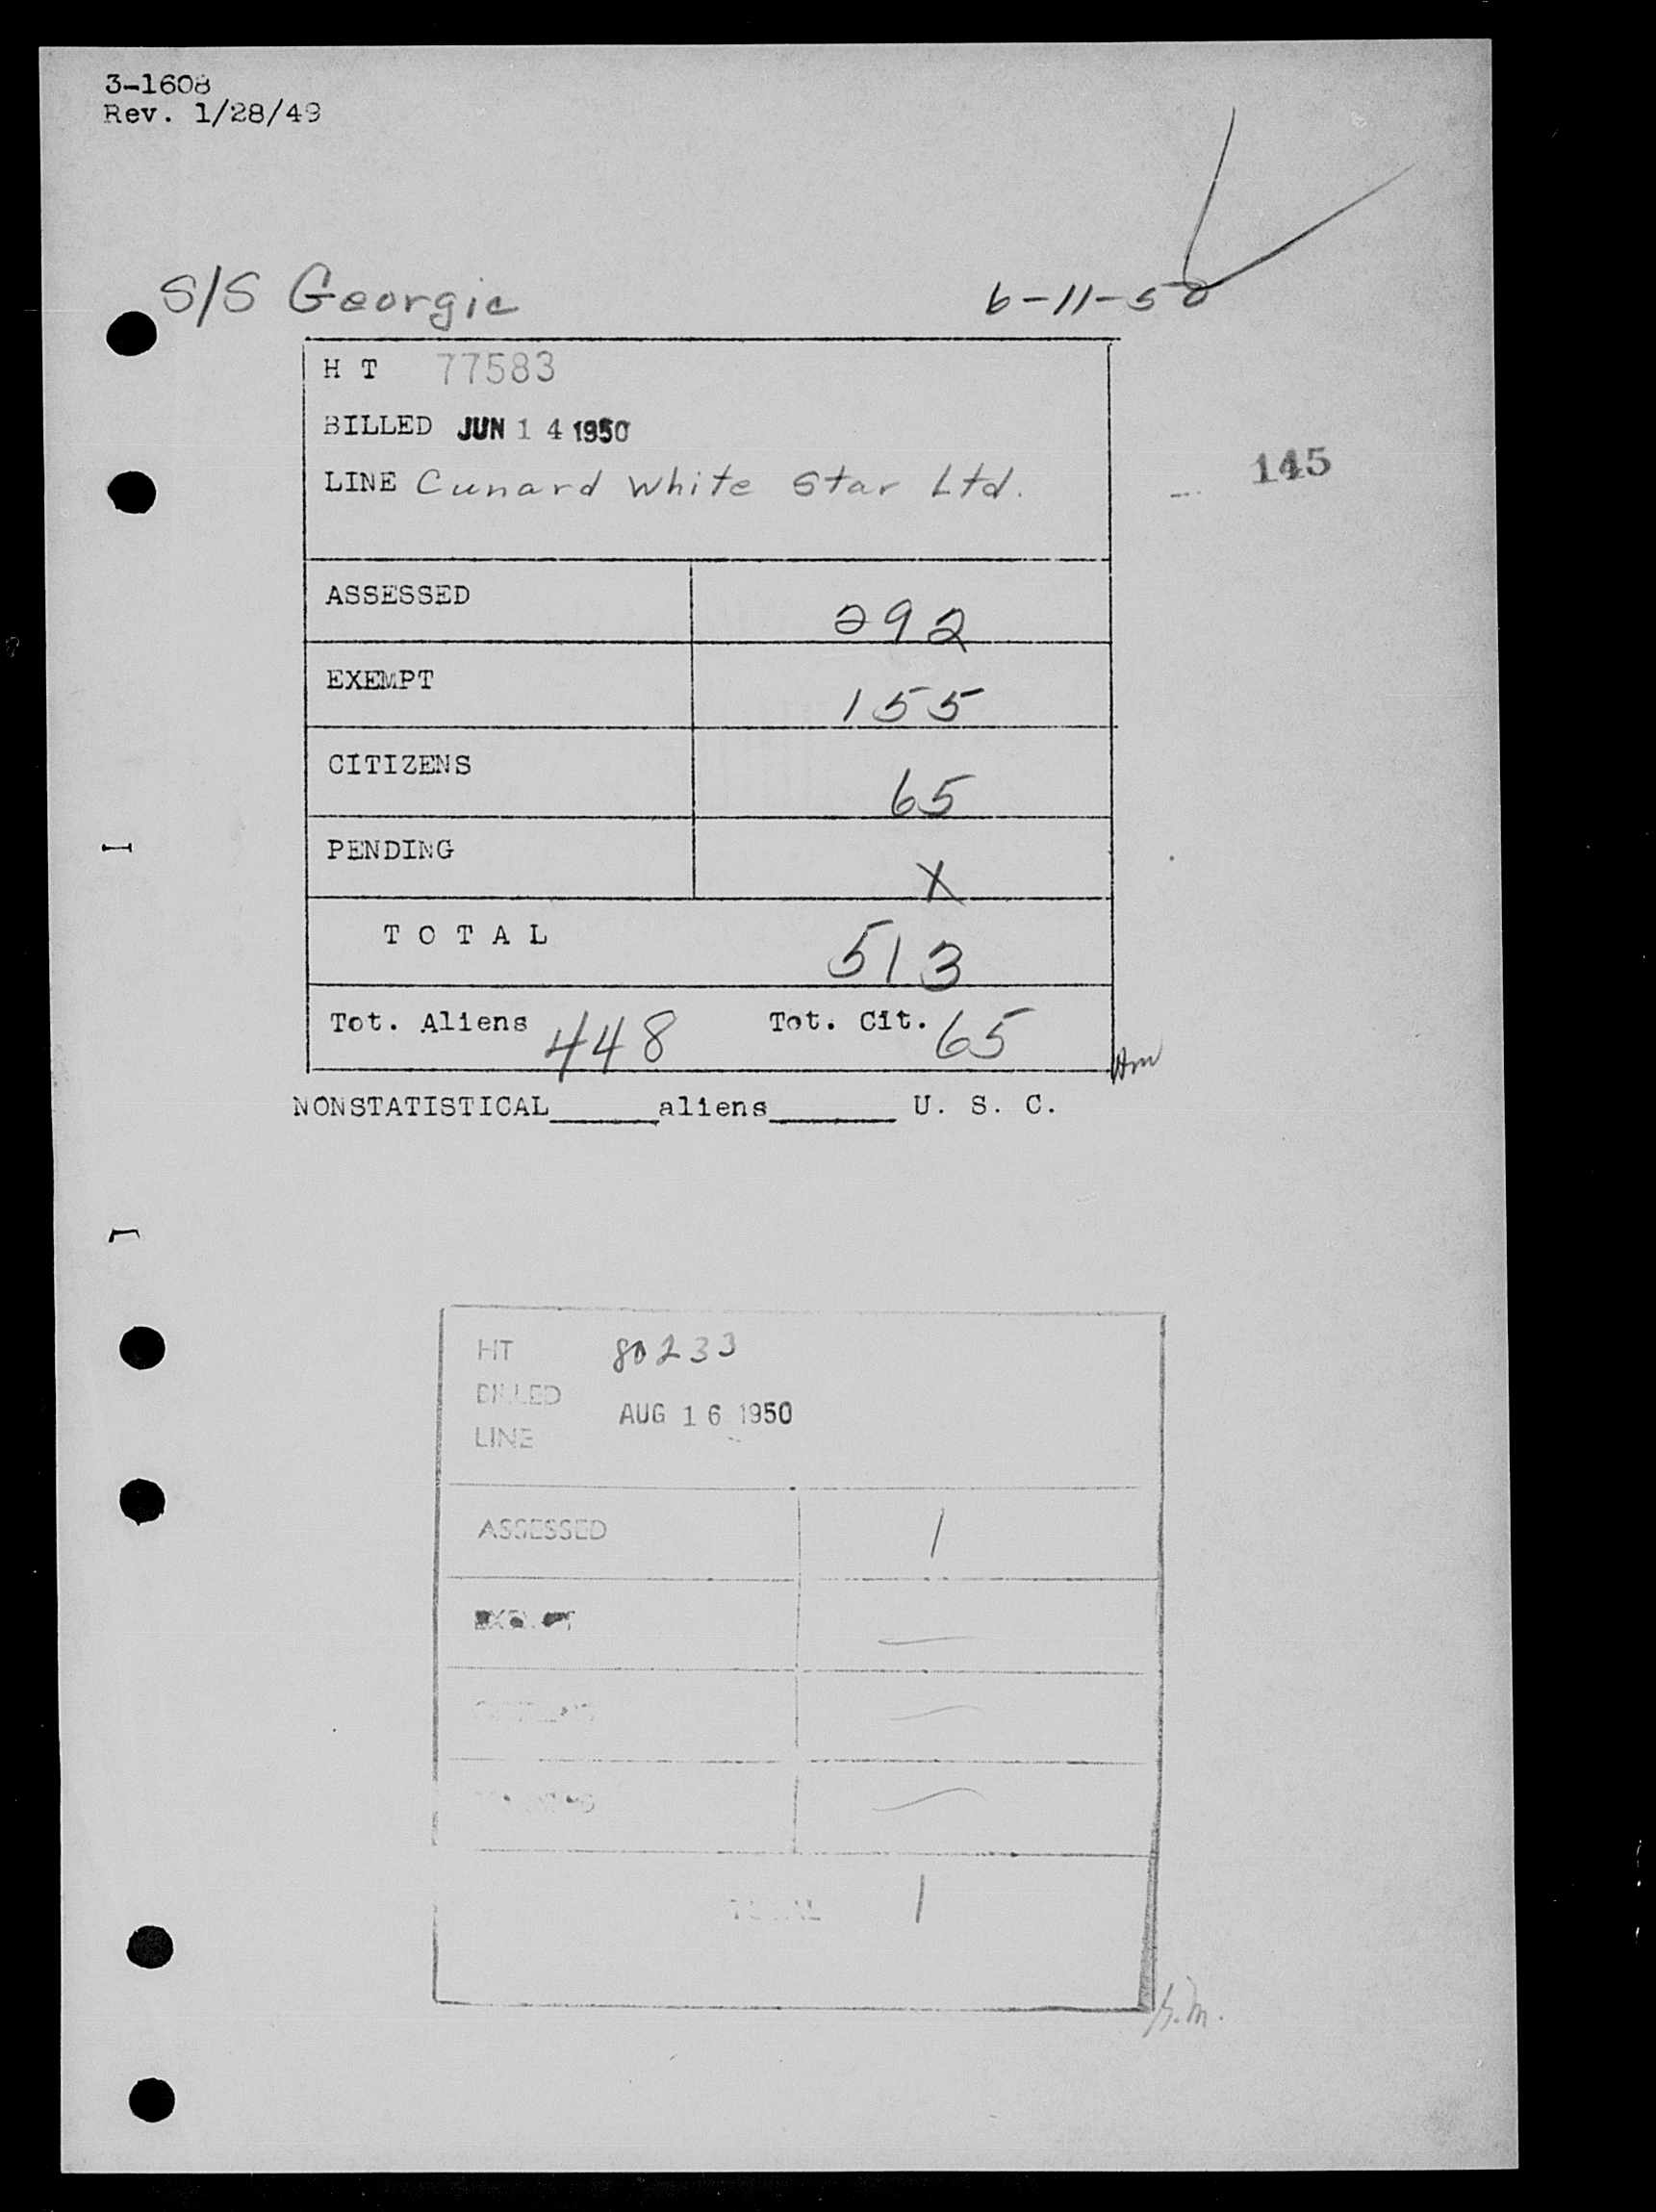 3-1608
Rev. 1/28/49
S/S Georgic 6-11-50
H T 77583
BILLED JUN 14 1950
LINE Cunard White Star Ltd.
145
ASSESSED 292
EXEMPT 155
CITIZENS 65
PENDING X
T O T A L 513
Tot. Aliens 448 Tot. Cit. 65
NONSTATISTICAL______aliens_______ U. S. C.
HT 80233
BILLED AUG 16 1950
LINE
ASSESSED 1
EXEMPT —
—
—
TOTAL 1